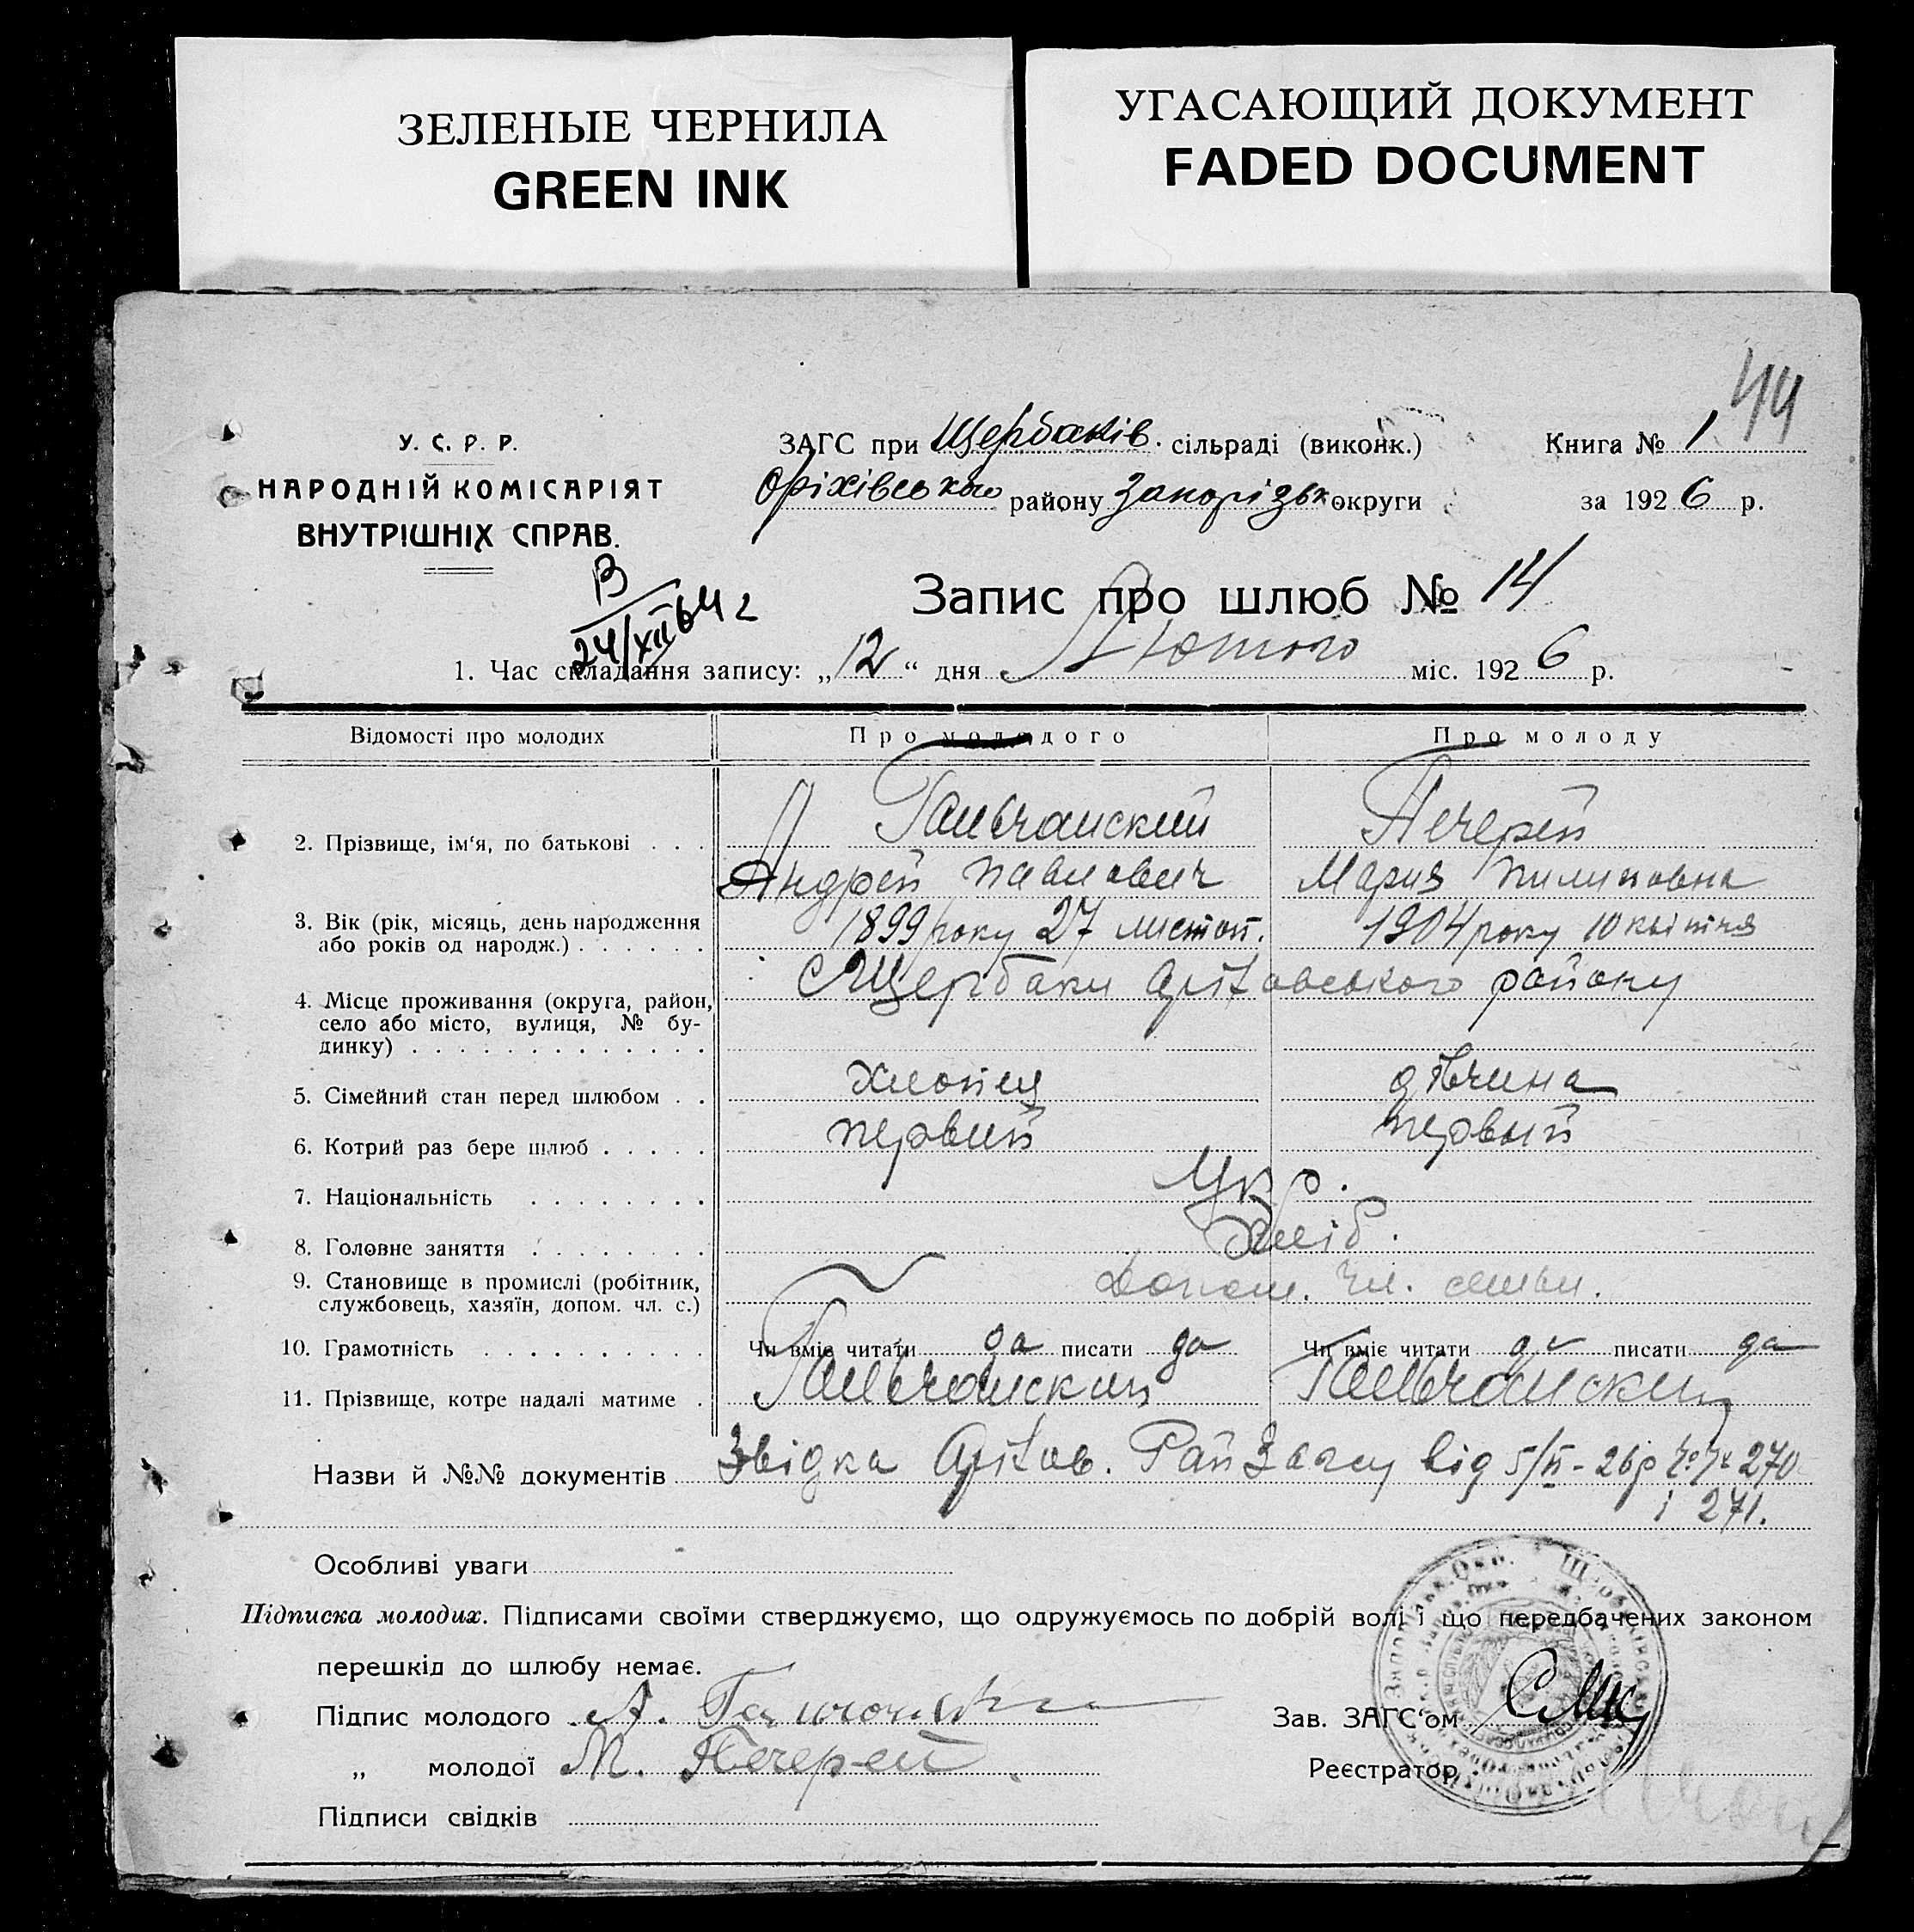 ЗЕЛЕНЫЕ ЧЕРНИЛА
GREEN INK
УГАСАЮЩИЙ ДОКУМЕНТ
FADED DOCUMENT
44
У. С. Р. Р.
НАРОДНІЙ КОМІСАРІЯТ
ВНУТРІШНІХ СПРАВ.
ЗАГС при Щербаків. сільраді (виконк.)
Оріхівського району Запорізьк округи
Книга № 1
за 1926 р.
В
24/XII 64 г
Запис про шлюб № 14
1. Час складання запису: „12“ дня Лютого міс. 1926 р.
Відомості про молодих Про молодого Про молоду
2. Прізвище, ім'я, по батькові . . . Гальчанский Печерей
Андрей Павлович Мария Пилиповна
3. Вік (рік, місяць, день народження 1899 року 27 листоп. 1904 року 10 квітня
або років од народж.) . . . . . .
4. Місце проживання (округа, район, с Щербаки Оріховського району
село або місто, вулиця, № бу-
динку) . . . . . . . . . . . . .
5. Сімейний стан перед шлюбом . . хлопец дівчина
6. Котрий раз бере шлюб . . . . . первий первый
7. Національність . . . . . . . . Укр.
8. Головне заняття . . . . . . . . Хліб.
9. Становище в промислі (робітник, Допом. чл. семьи.
службовець, хазяїн, допом. чл. с.)
10. Грамотність . . . . . . . . . . Чи вміє читати да писати да Чи вміє читати да писати да
11. Прізвище, котре надалі матиме . Гальчанский Гальчанский
Назви й №№ документів Звідка Оріхов. РайЗагсу від 5/II - 26р 270
і 271.
Особливі уваги
Підписка молодих. Підписами своїми стверджуємо, що одружуємось по добрій волі і що передбачених законом
перешкід до шлюбу немає.
Підпис молодого А.
Зав. ЗАГС'ом
„ молодої М. Печерей
Реєстратор
Підписи свідків